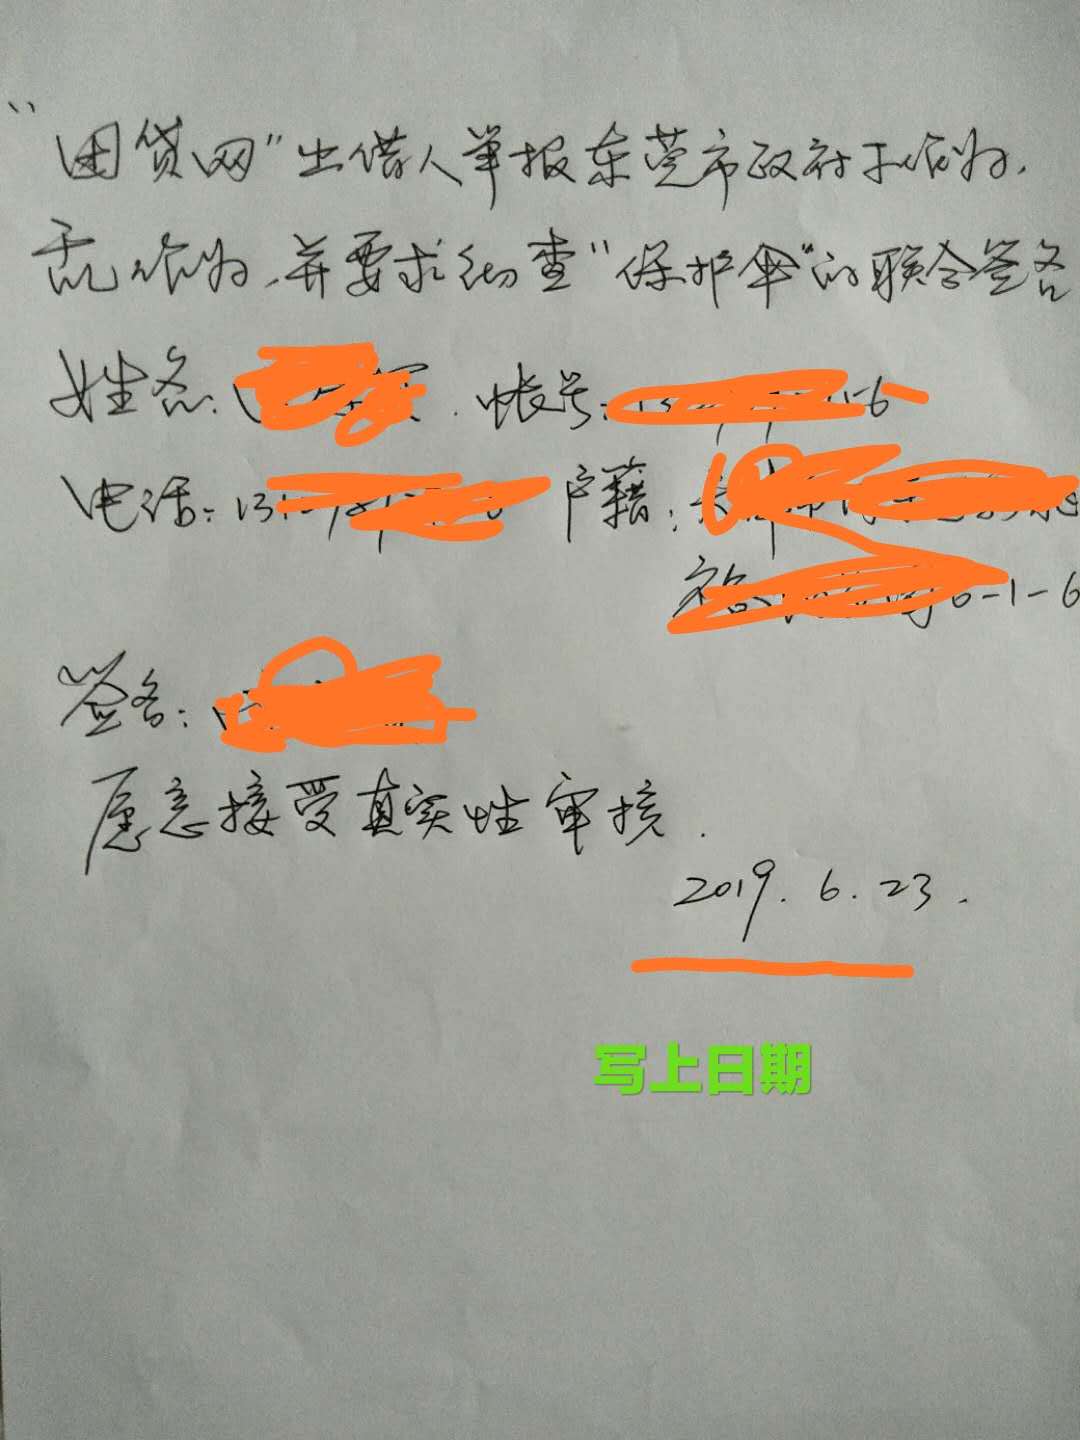 “团贷网”出借人举报东莞市政府不作为，
乱作为，并要求彻查“保护伞”的联合签名
姓名： 帐号： 6
电话：131 户籍：
6-1-6
签名：
愿意接受真实性审核．
2019．6．23．
写上日期